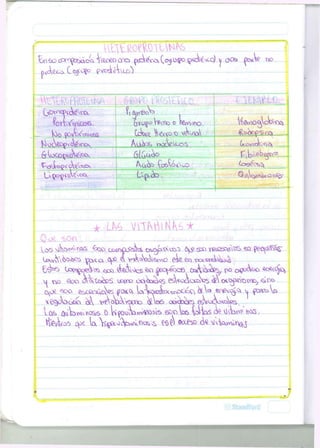 HETEROPROTEINAS
En su composición tienen una proteína (grupo proteico) y una parte no
proteica (grupo prostético)
HETEROPROTEINA GRUPO PROSTETICO EJEMPLO
Cromoproteína Pigmento
Porfirínicas Grupo hemo o hemino Hemoglobina
No porfirínicas Cobre, Hierro o retinal Rodopsina
Nucleoproteína Ácidos nucleicos Cromatina
Glucoproteína Glúcido Fibrinógeno
Fosfoproteína Ácido fosfórico Caseína
Lipoproteína Lípido Quilomicrones
* LAS VITAMINAS *
Que son:
Los vitaminas son compuestos orgánicos que son necesarios en pequeñas
cantidades para que el metabolismo este en normalidad.
Estos compuestos son efectivos en pequeñas cantidades, no aportan energía
y no son utilizados como unidades estructurales del organismo, sino
que son esenciales para la transformación de la energía y para la
regulación del metabolismo de las unidades estructurales.
Las avitaminosis o hipovitaminosis son las faltas de vitaminas.
Mientras que la hipervitaminosis es el exceso de vitaminas
Standford